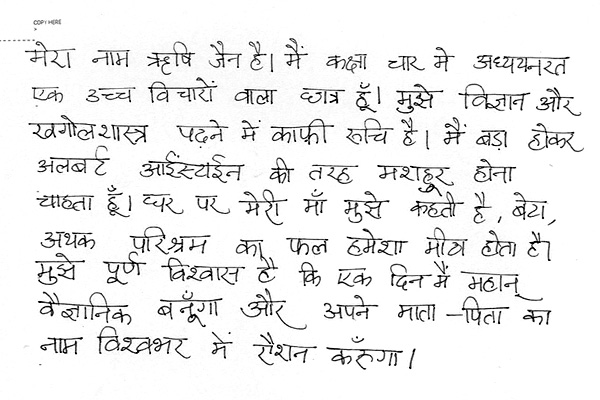 COPY HERE
मेरा नाम ऋषि जैन है। मैं कक्षा चार मे अध्ययनरत
एक उच्च विचारों वाला छात्र हूँ। मुझे विज्ञान और
खगोलशास्त्र पढ़ने में काफ़ी रूचि है। मैं बड़ा होकर
अलबर्ट आईंस्टाईन की तरह मशहूर होना
चाहता हूँ। घर पर मेरी माँ मुझे कहती है, बेटा,
अथक परिश्रम का फल हमेशा मीठा होता है।
मुझे पूर्ण विश्वास है कि एक दिन मैं महान्
वैज्ञानिक बनूँगा और अपने माता-पिता का
नाम विश्वभर में रौशन करूँगा।